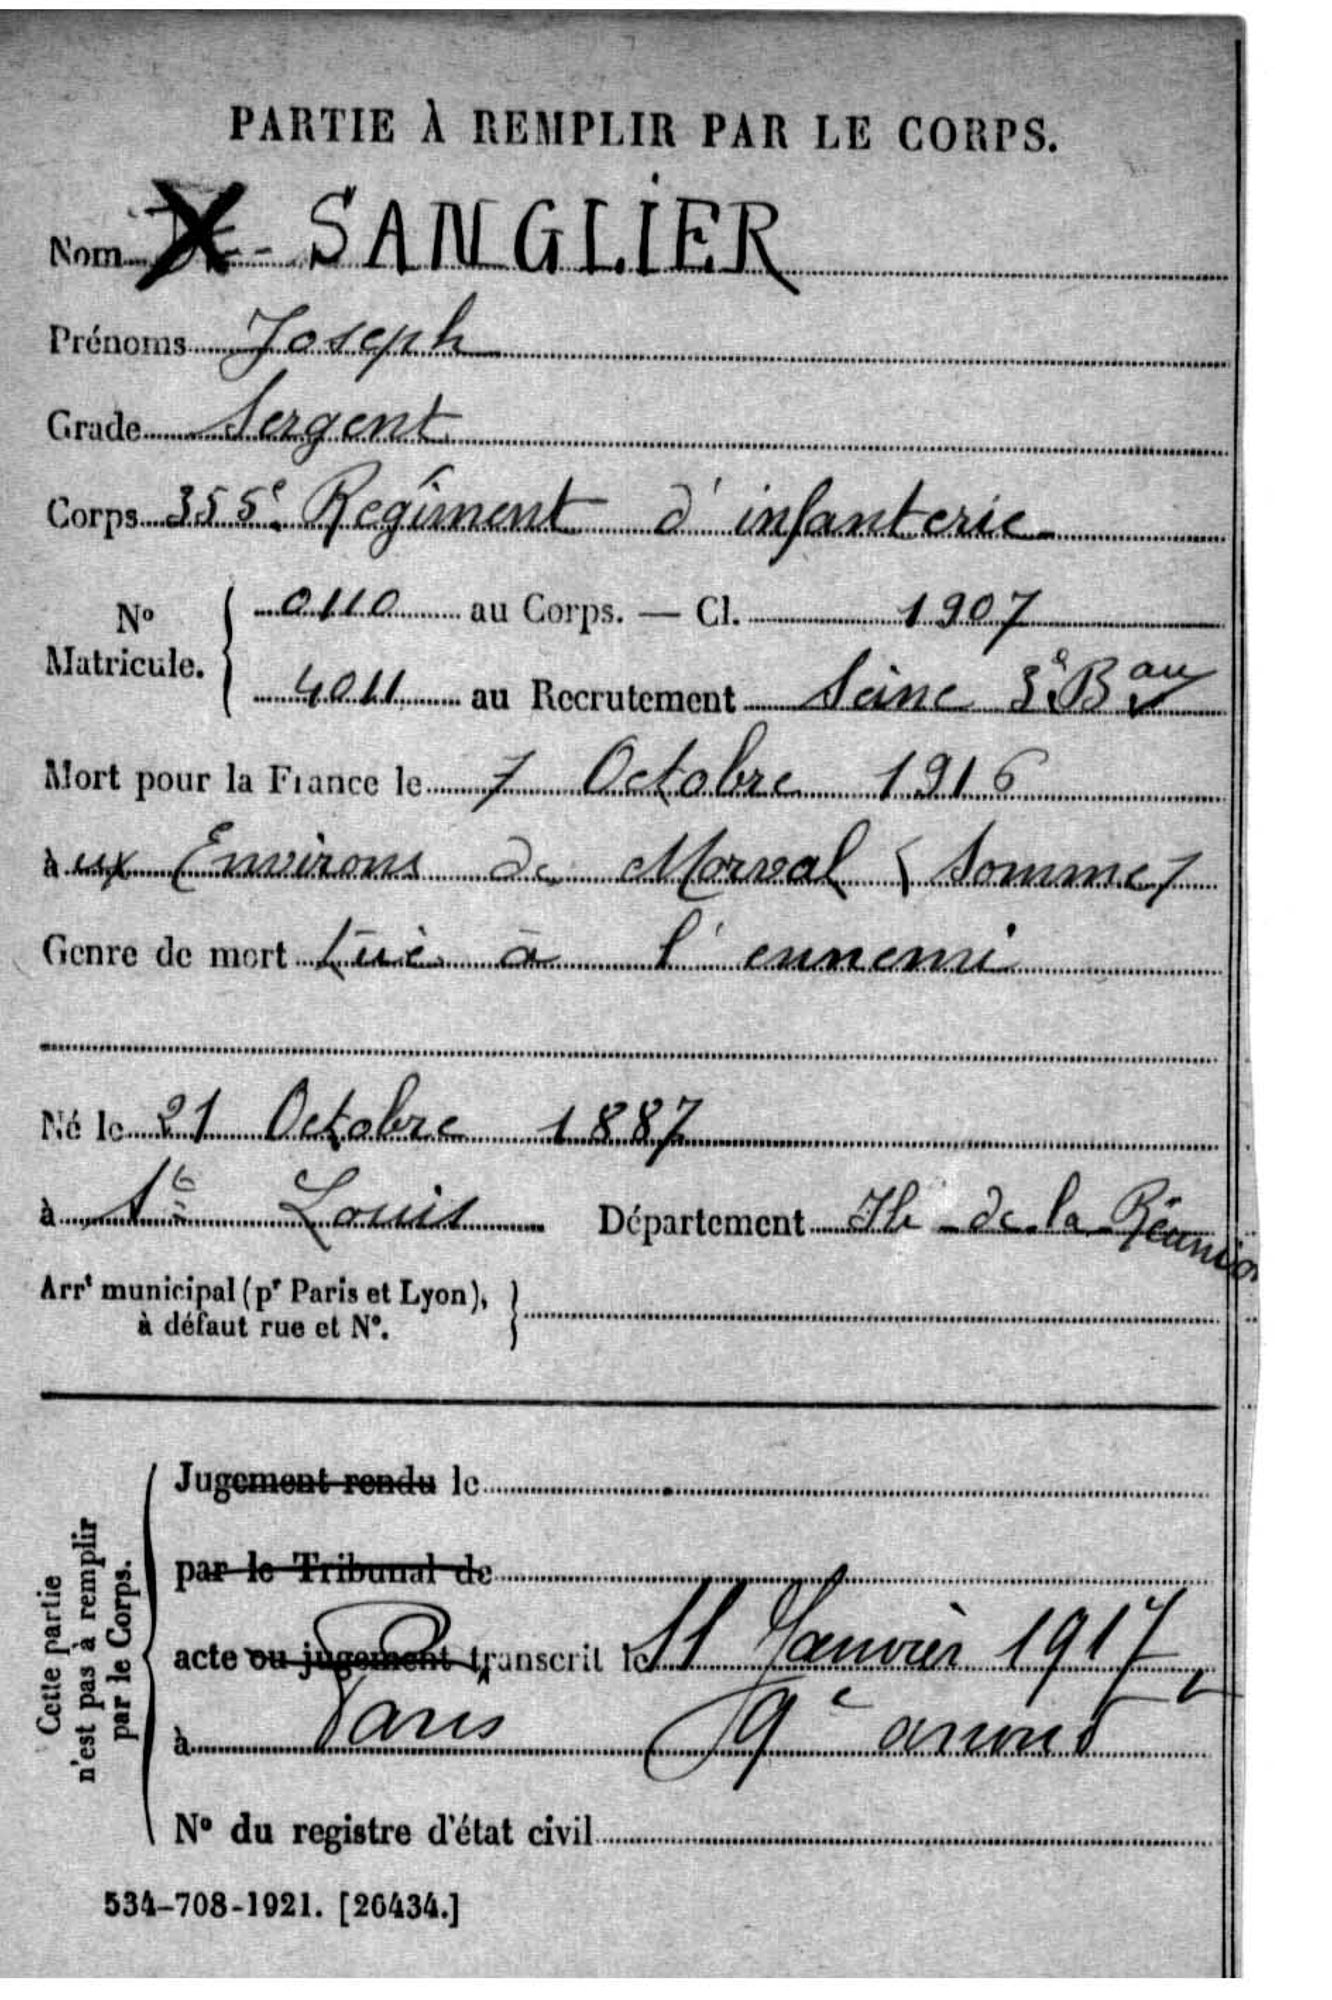 PARTIE À REMPLIR PAR LE CORPS.
Nom - SANGLIER
Prénoms Joseph
Grade Sergent
Corps 355e Regiment d'infanterie
No Matricule. { 0110 au Corps. — Cl. 1907
4011 au Recrutement Seine 3e Bau
Mort pour la France le 7 Octobre 1916
aux Environs de Morval (Somme)
Genre de mort tué à l'ennemi
Né le 21 Octobre 1887
à St Louis Département Ile de la Réunion
Arrt municipal (pr Paris et Lyon), }
à défaut rue et No.
Cette partie
n'est pas à remplir
par le Corps.
Jugement rendu le
par le Tribunal de
acte ou jugement transcrit le 11 Janvier 1917
à Paris 9e arront
No du registre d'état civil
534-708-1921. [26434.]